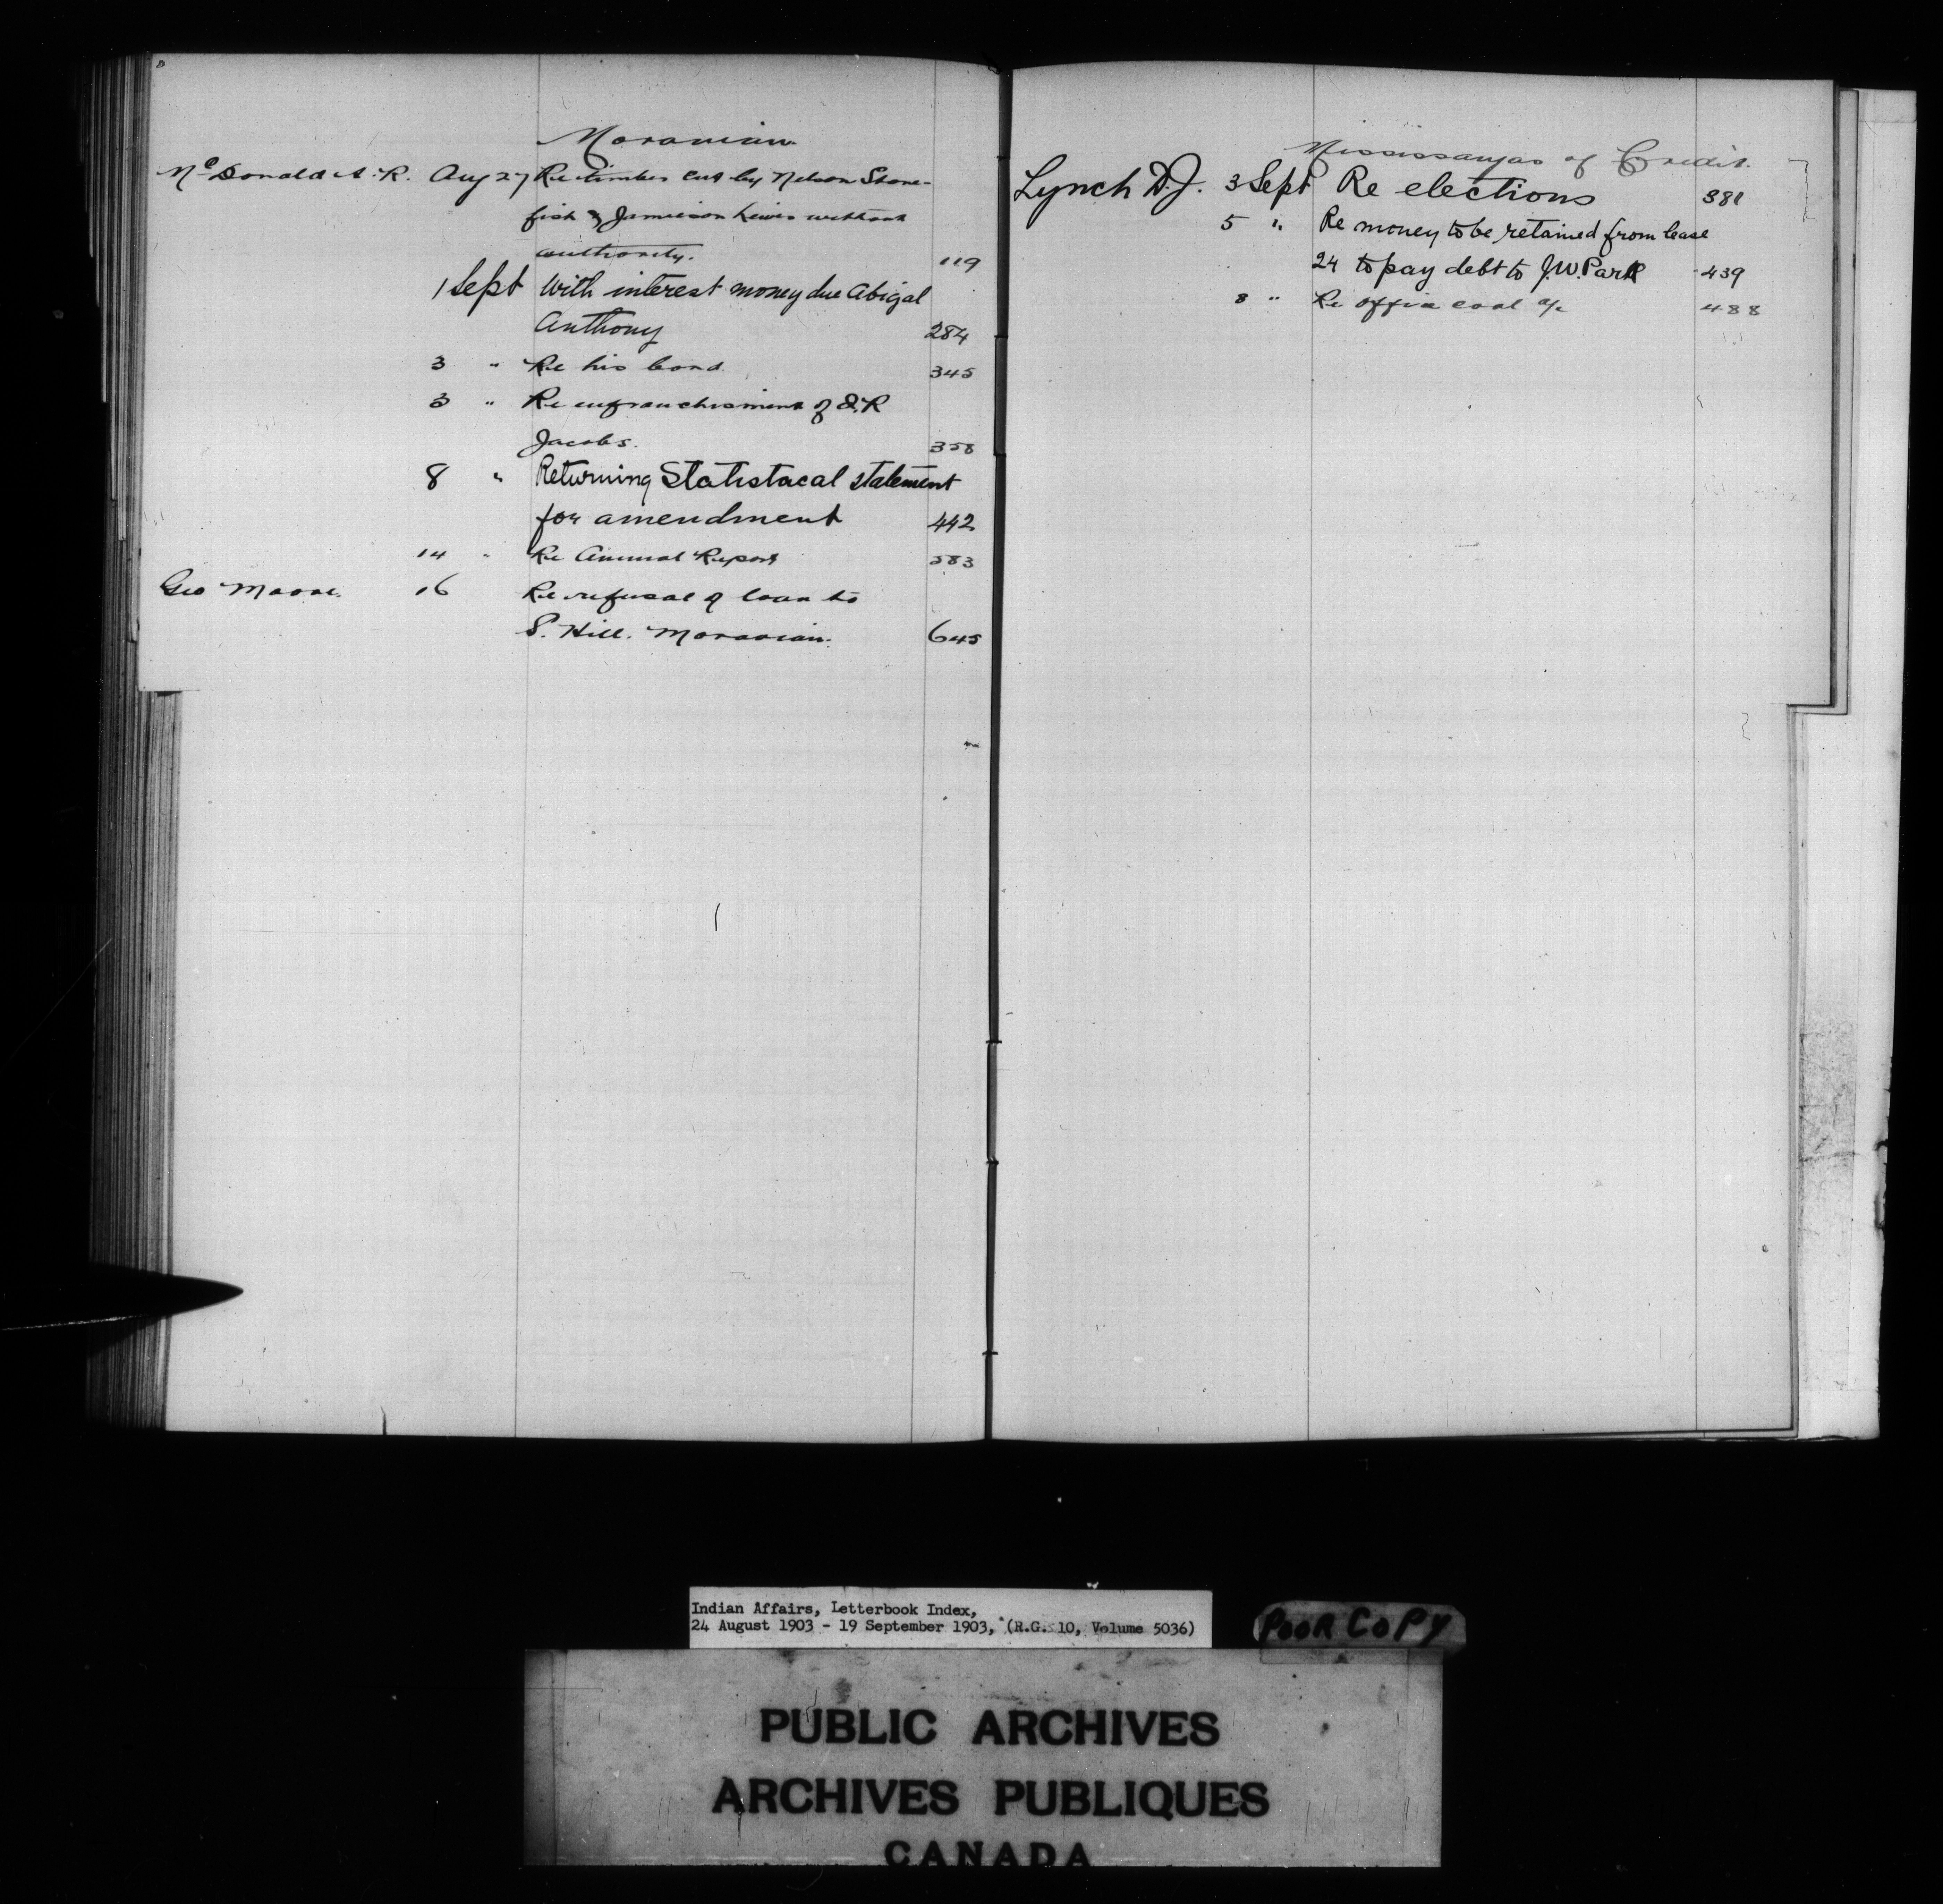 Moravian
McDonald A. R. Aug 27 Re timber cut by Nelson Stone-
fish & Jamieson Lewis without
authority. 119
1 Sept With interest money due Abigal
Anthony 284
3 " Re his bond. 345
3 " Re enfranchisment of J. R
Jacobs. 358
8 " Returning Statistacal statement
for amendment 442
14 " Re Annual Report 583
Geo Moore. 16 Re refusal of loan to
S. Hill. Moravian. 645
Mississaugas of Credit.
Lynch D.J. 3 Sept Re elections 381
5 " Re money to be retained from lease
24 to pay debt to J.W. Park 439
8 " Re office coal a/c 488
Indian Affairs, Letterbook Index,
24 August 1903 - 19 September 1903, (R.G. 10, Volume 5036)
POOR COPY
PUBLIC ARCHIVES
ARCHIVES PUBLIQUES
CANADA